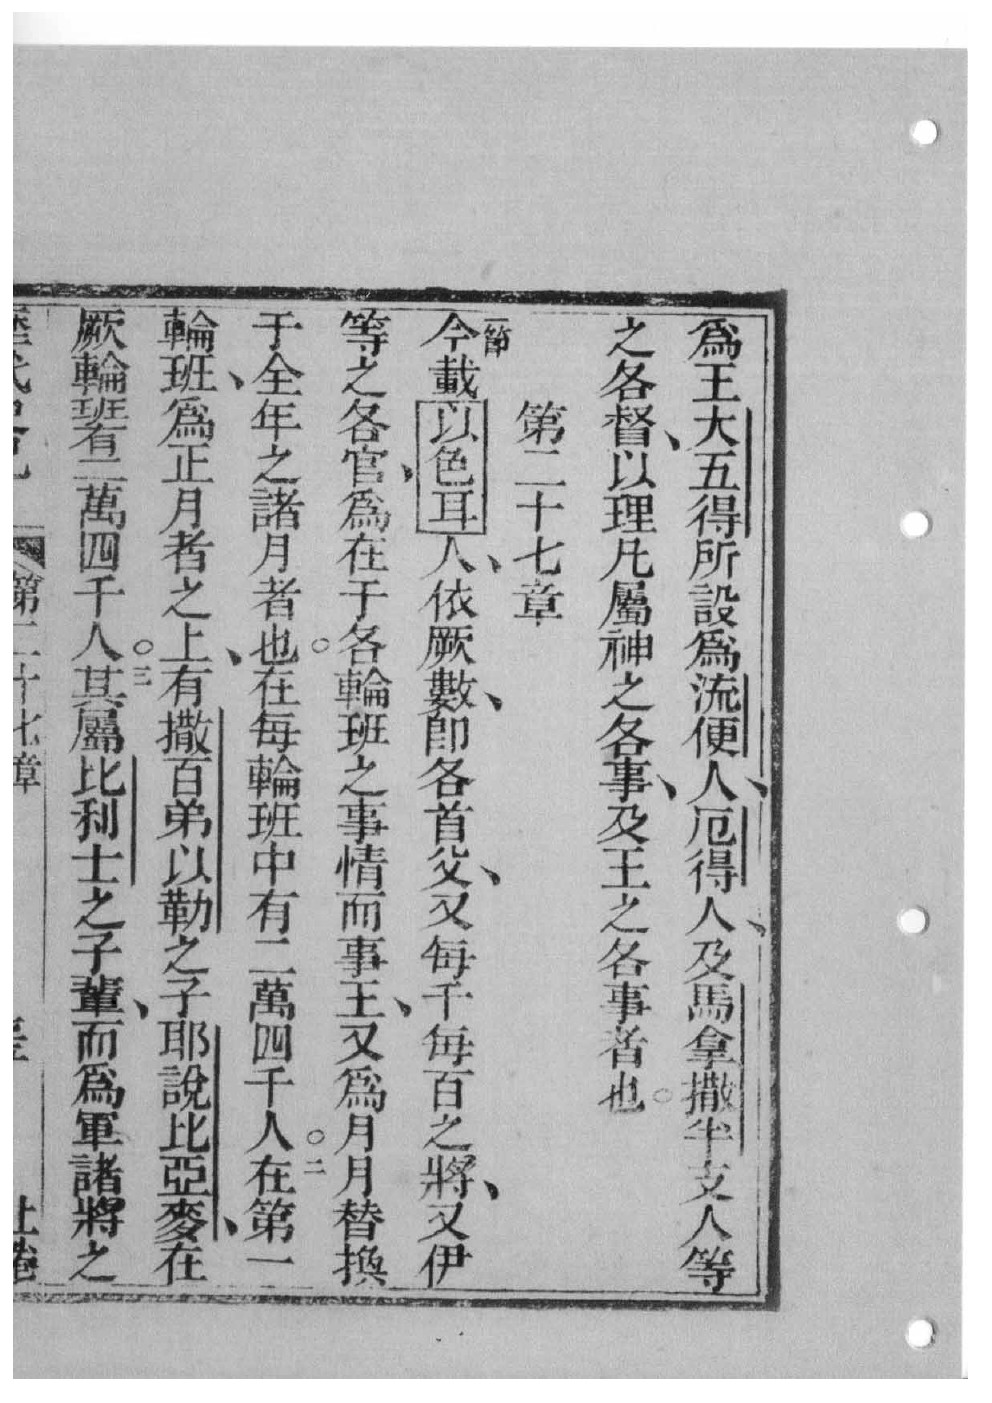 為王大五得所設為流便人、厄得人、及馬拿撒半支人等
之各督、以理凡屬神之各事、及王之各事者也。
第二十七章
一節今載以色耳人、依厥數、即各首父、又每千每百之將、又伊
等之各官、為在于各輪班之事情而事王、又為月月替換
于全年之諸月者也。在每輪班中有二萬四千人。二在第一
輪班、為正月者之上、有撒百弟以勒之子耶說比亞麥、在
厥輪班有二萬四千人。三其屬比利士之子輩、而為軍諸將之
第二十七章